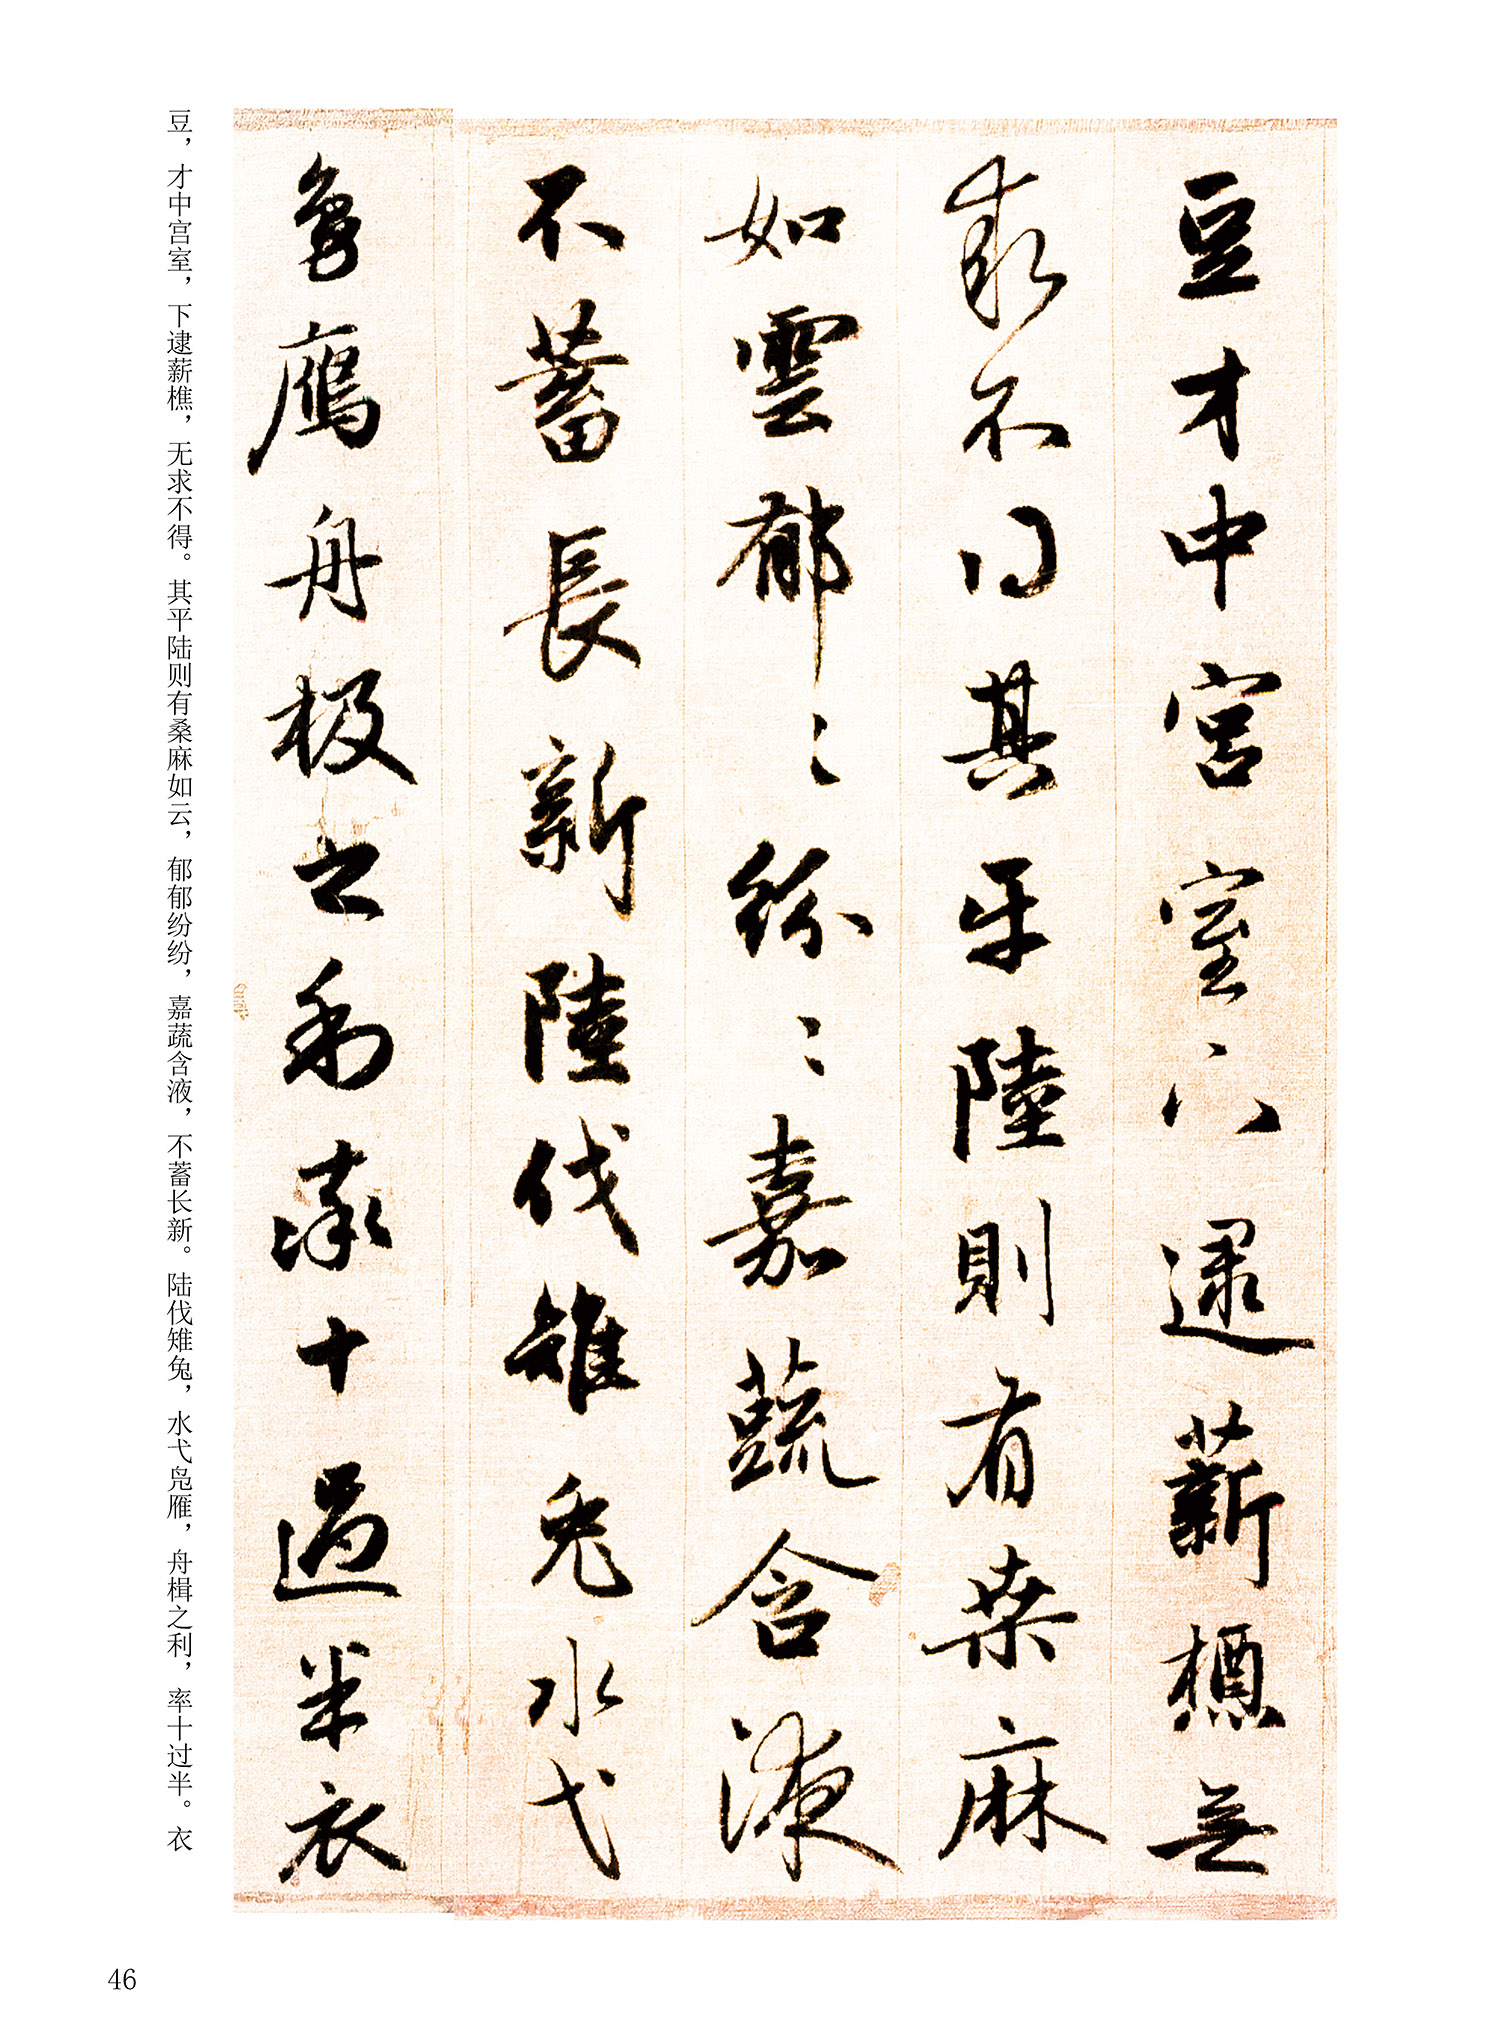 豆才中宫室下逮薪樵无
求不得其平陸則有桒麻
如雲郁〻紛〻嘉蔬含液
不蓄長新陸伐雉兎水弋
鳬鴈舟楫之利率十過半衣
豆，才中宫室，下逮薪樵，无求不得。其平陆则有桑麻如云，郁郁纷纷，嘉蔬含液，不蓄长新。陆伐雉兔，水弋凫雁，舟楫之利，率十过半。衣
46